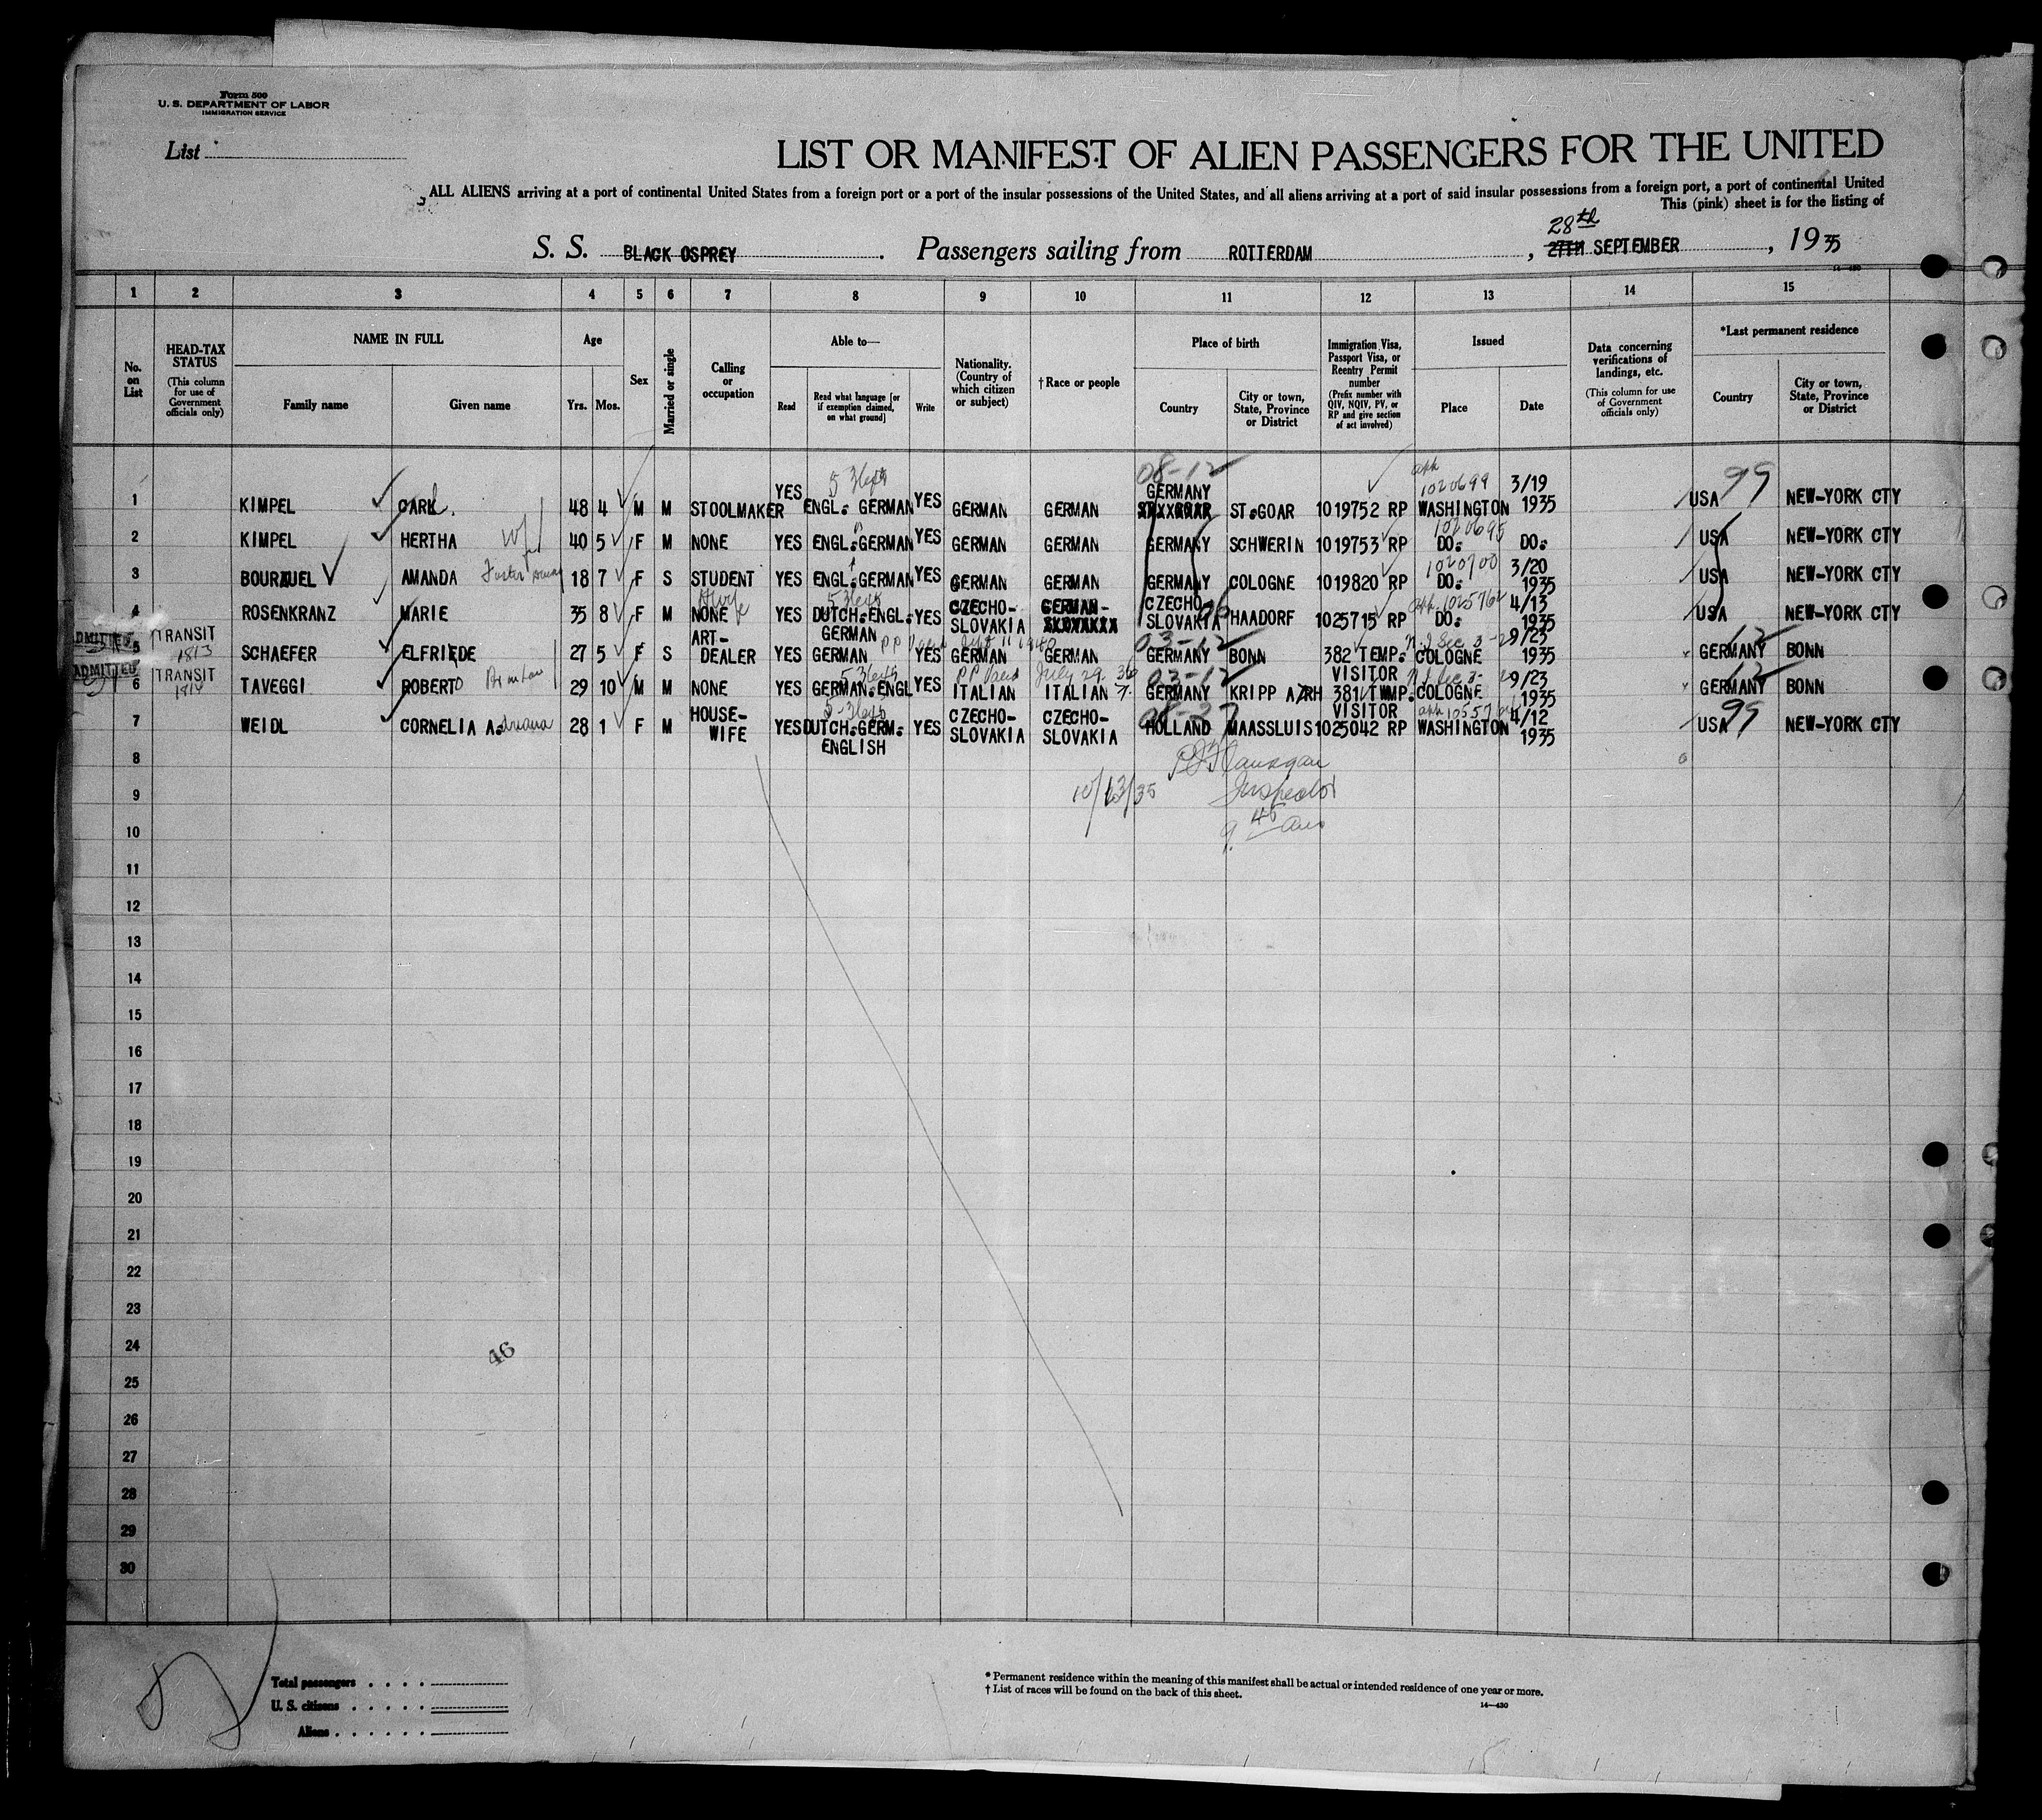 Form 500
U. S. DEPARTMENT OF LABOR
IMMIGRATION SERVICE
List
LIST OR MANIFEST OF ALIEN PASSENGERS FOR THE UNITED
ALL ALIENS arriving at a port of continental United States from a foreign port or a port of the insular possessions of the United States, and all aliens arriving at a port of said insular possessions from a foreign port, a port of continental United
This (pink) sheet is for the listing of
28th
S. S. BLACK OSPREY. Passengers sailing from ROTTERDAM, 27TH SEPTEMBER, 1935
14-430
1 2 3 4 5 6 7 8 9 10 11 12 13 14 15
No. on List
HEAD-TAX STATUS (This column for use of Government officials only)
NAME IN FULL
Family name Given name
Age
Yrs. Mos.
Sex
Married or single
Calling or occupation
Able to—
Read
Read what language [or if exemption claimed, on what ground]
Write
Nationality. (Country of which citizen or subject)
†Race or people
Place of birth
Country
City or town, State, Province or District
Immigration Visa, Passport Visa, or Reentry Permit number (Prefix number with QIV, NQIV, PV, or RP and give section of act involved)
Issued
Place Date
Data concerning verifications of landings, etc. (This column for use of Government officials only)
*Last permanent residence
Country
City or town, State, Province or District
08-12 1020699 99
1 KIMPEL CARL 48 4 M M STOOLMAKER YES ENGL. GERMAN YES GERMAN GERMAN GERMANY ST.GOAR 1019752 RP WASHINGTON 3/19 1935 USA NEW-YORK CTY
1020695
2 KIMPEL HERTHA Wf 40 5 F M NONE YES ENGL.GERMAN YES GERMAN GERMAN GERMANY SCHWERIN 1019753 RP DO. DO. USA NEW-YORK CTY
1020700
3 BOURAUEL AMANDA 18 7 F S STUDENT YES ENGL.GERMAN YES GERMAN GERMAN GERMANY COLOGNE 1019820 RP DO. 3/20 1935 USA NEW-YORK CTY
4 ROSENKRANZ MARIE 35 8 F M NONE YES DUTCH.ENGL. GERMAN YES CZECHO-SLOVAKIA GERMAN CZECHO-SLOVAKIA HAADORF 1025715 RP DO. 4/13 1935 USA NEW-YORK CTY
ADMITTED TRANSIT 1813 03-12 12
5 SCHAEFER ELFRIEDE 27 5 F S ART-DEALER YES GERMAN YES GERMAN GERMAN GERMANY BONN 382 TEMP. VISITOR COLOGNE 9/23 1935 GERMANY BONN
ADMITTED TRANSIT 1814 July 29 36 03-12 12
6 TAVEGGI ROBERTO 29 10 M M NONE YES GERMAN.ENGL YES ITALIAN ITALIAN GERMANY KRIPP A/RH 381 TEMP. VISITOR COLOGNE 9/23 1935 GERMANY BONN
99
7 WEIDL CORNELIA A.driana 28 1 F M HOUSE-WIFE YES DUTCH.GERM. ENGLISH YES CZECHO-SLOVAKIA CZECHO-SLOVAKIA HOLLAND MAASSLUIS 1025042 RP WASHINGTON 4/12 1935 USA NEW-YORK CTY
8
9 10/13/35 Inspector
10
11
12
13
14
15
16
17
18
19
20
21
22
23
24
46
25
26
27
28
29
30
Total passengers
U. S. citizens
Aliens
* Permanent residence within the meaning of this manifest shall be actual or intended residence of one year or more.
† List of races will be found on the back of this sheet.
14-430